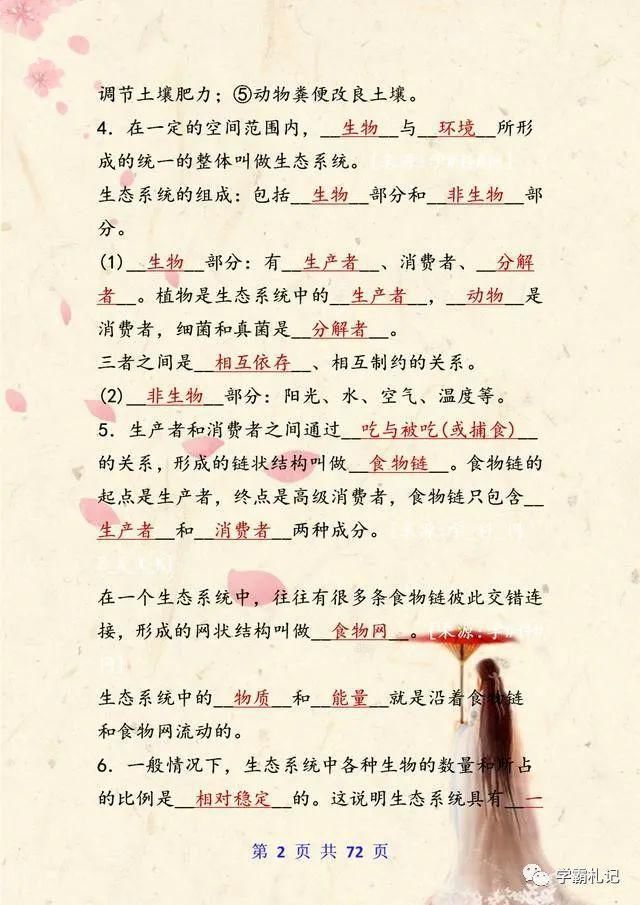 调节土壤肥力；⑤动物粪便改良土壤。
4．在一定的空间范围内，__生物__与__环境__所形
成的统一的整体叫做生态系统。
生态系统的组成：包括__生物__部分和__非生物__部
分。
(1)__生物__部分：有__生产者__、消费者、__分解
者__。植物是生态系统中的__生产者__，__动物__是
消费者，细菌和真菌是__分解者__。
三者之间是__相互依存__、相互制约的关系。
(2)__非生物__部分：阳光、水、空气、温度等。
5．生产者和消费者之间通过__吃与被吃(或捕食)__
的关系，形成的链状结构叫做__食物链__。食物链的
起点是生产者，终点是高级消费者，食物链只包含__
生产者__和__消费者__两种成分。
在一个生态系统中，往往有很多条食物链彼此交错连
接，形成的网状结构叫做__食物网__。
生态系统中的__物质__和__能量__就是沿着食物链
和食物网流动的。
6．一般情况下，生态系统中各种生物的数量和所占
的比例是__相对稳定__的。这说明生态系统具有__一
第 2 页 共 72 页
学霸札记